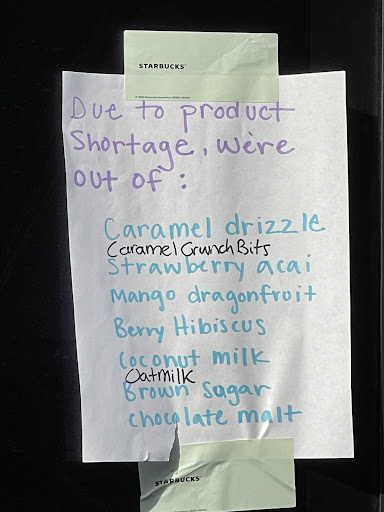 STARBUCKS
Due to product
Shortage, we're
out of :
Caramel drizzle
Caramel Crunch Bits
Strawberry acai
Mango dragonfruit
Berry Hibiscus
Coconut milk
Oatmilk
Brown Sugar
chocolate malt
STARBUCKS